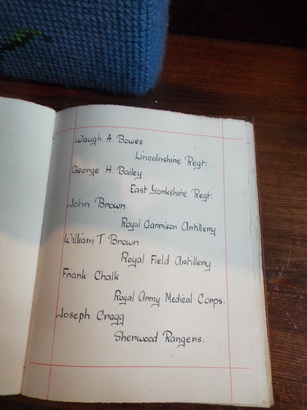 Waugh A. Bowes
Lincolnshire Regt.
George H. Bailey
East Yorkshire Regt.
John Brown
Royal Garrison Artillery
William T Brown
Royal Field Artillery.
Frank Chalk
Royal Army Medical Corps.
Joseph Cragg
Sherwood Rangers.